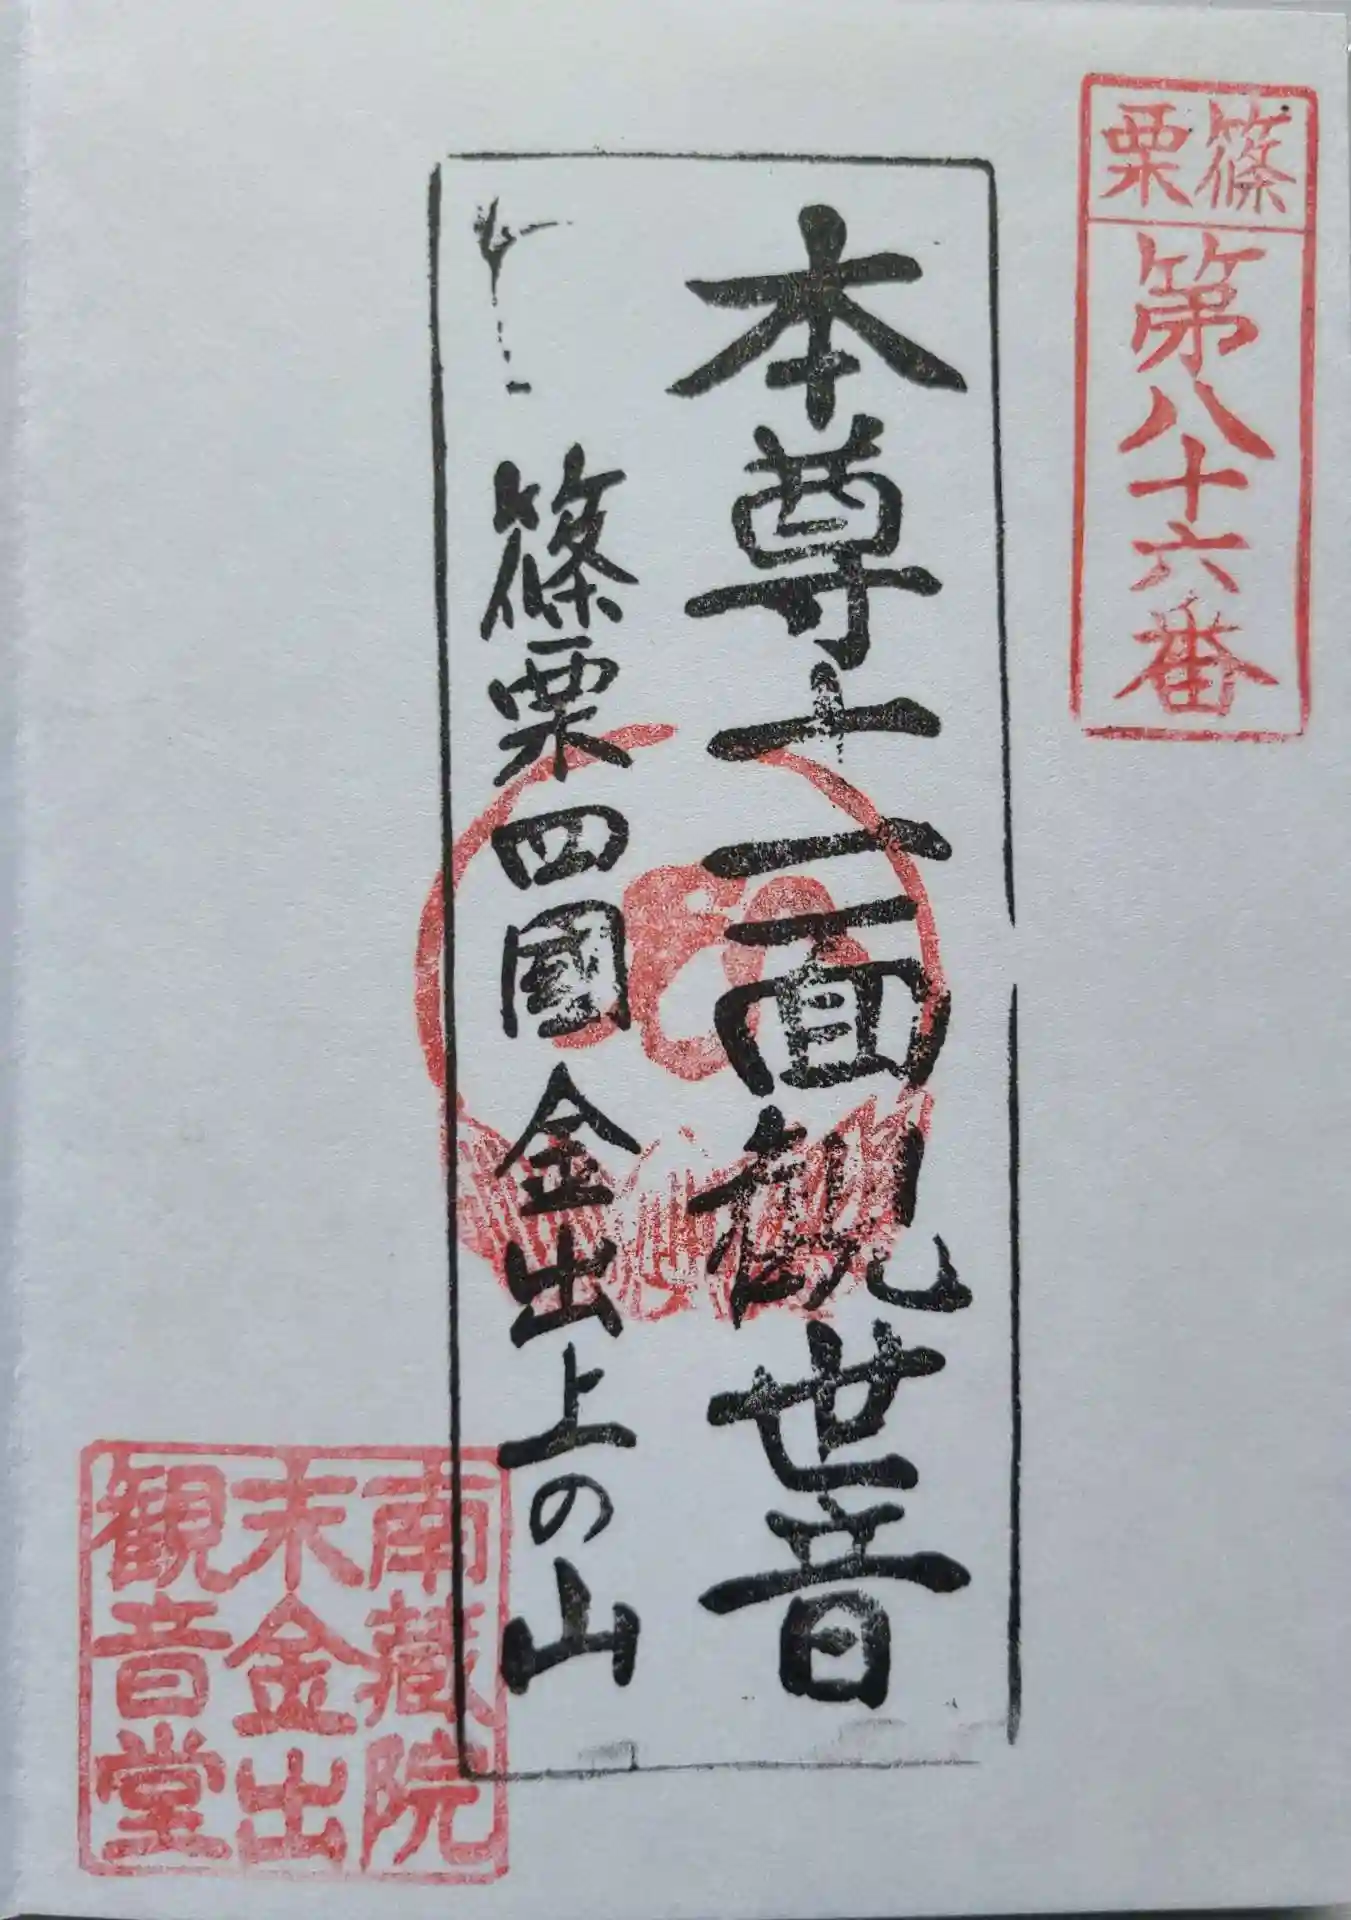 篠栗
第八十六番
本尊十一面観世音
篠栗四國金出上の山
南藏院
末金出
観音堂